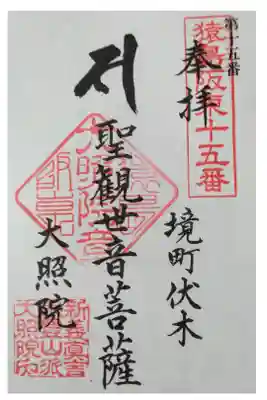 第十五番
奉拝
猿島阪東十五番
境町伏木
聖観世音菩薩
大照院